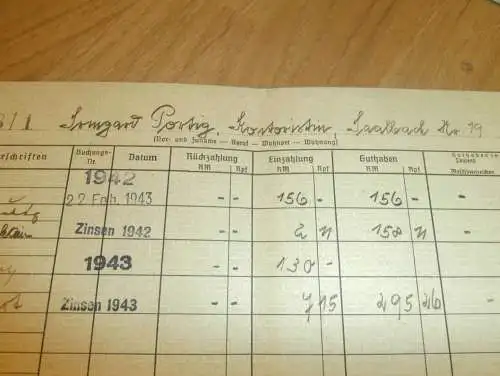 Irmgard Portig, Kontoristin, Saalbach Nr. 19
(Vor- und Zuname — Beruf — Wohnort — Wohnung)
Buchungs-Nr. Datum Rückzahlung RM Rpf Einzahlung RM Rpf Guthaben RM Rpf
1942
22 Feb. 1943 - - 156 - 156 -
Zinsen 1942 - - 2 11 158 11 -
1943 130 -
Zinsen 1943 - - 7 15 295 26 -